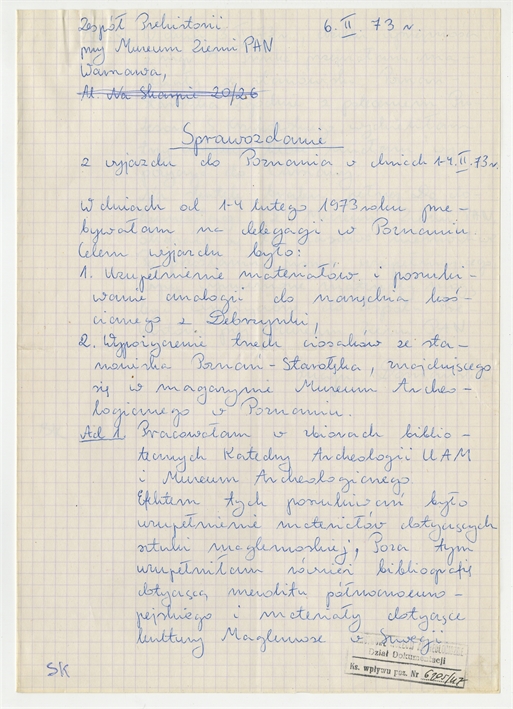 Zespół Prehistorii 6. II. 73 r.
przy Muzeum Ziemi PAN
Warszawa,
Al. Na Skarpie 20/26
Sprawozdanie
z wyjazdu do Poznania w dniach 1-4.II.73r.
W dniach od 1-4 lutego 1973 roku prze-
bywałam na delegacji w Poznaniu.
Celem wyjazdu było:
1. Uzupełnienie materiałów i poszuki-
wanie analogii do narzędzia koś-
cianego z Dobrzynki,
2. Wypożyczenie trzech ciosaków ze sta-
nowiska Poznań-Starołęka, znajdującego
się w magazynie Muzeum Archeo-
logicznego w Poznaniu.
Ad 1. Pracowałam w zbiorach biblio-
tecznych Katedry Archeologii UAM
i Muzeum Archeologicznego
Efektem tych poszukiwań było
uzupełnienie materiałów dotyczących
sztuki maglemoskiej, Poza tym
uzupełniłam również bibliografię
dotyczącą mezolitu północnoeuro-
pejskiego i materiały dotyczące
kultury Maglemose w Szwecji
Dział Dokumentacji
Ks. wpływu poz. Nr
SK